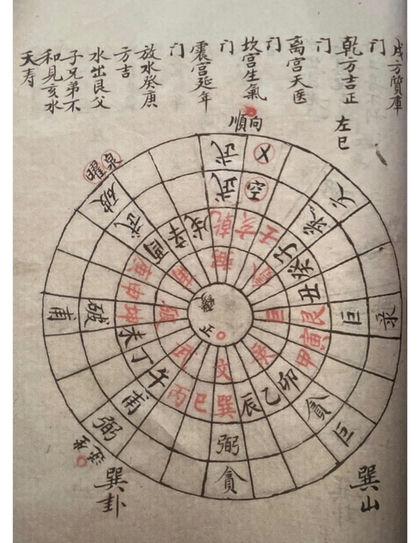 戌方質庫
门
乾方吉正
门
离宫天医
门
坎宫生氣
门
震宫延年
门
放水癸庚
方吉
水出艮父
子兄弟不
和見亥水
夭寿
左巳
順向
武
武
空
破
武
戌
乾
亥
壬
子
癸
丑
艮
寅
甲
卯
乙
辰
巽
巳
丙
午
丁
未
坤
申
庚
酉
辛
巨
录
破
甫
貪
巨
文
弼
貪
武
甫
弼
巽卦
巽山